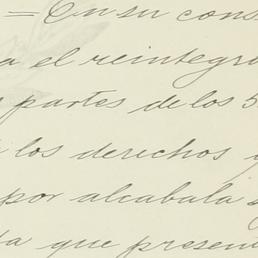 = En su cons
a el reintegro
partes de los 5
los derechos y
por alcabala y
ta que presen